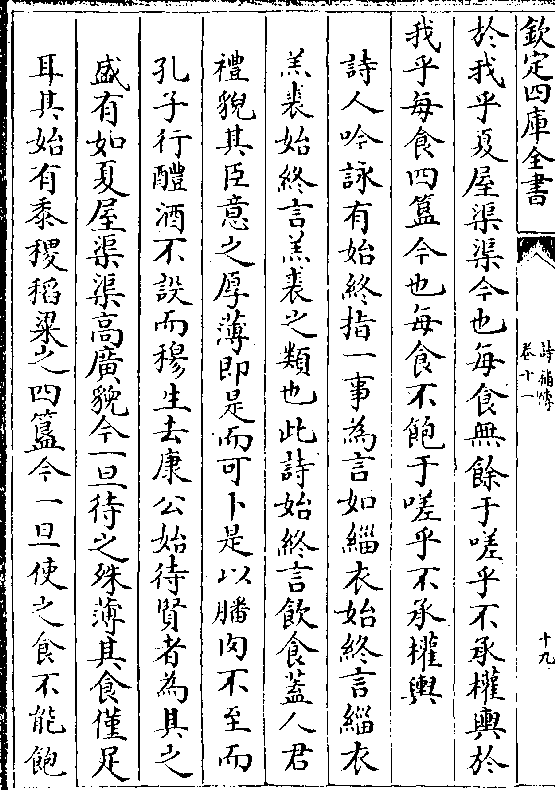 欽定四庫全書
詩補傳
卷十一
十九
於我乎夏屋渠渠今也每食無餘于嗟乎不承權輿於
我乎每食四簋今也每食不飽于嗟乎不承權輿
詩人吟詠有始終指一事為言如緇衣始終言緇衣
羔裘始終言羔裘之類也此詩始終言飲食蓋人君
禮貌其臣意之厚薄即是而可卜是以膰肉不至而
孔子行醴酒不設而穆生去康公始待賢者為具之
盛有如夏屋渠渠高廣貌今一旦待之殊薄其食僅足
耳其始有黍稷稻粱之四簋今一旦使之食不能飽